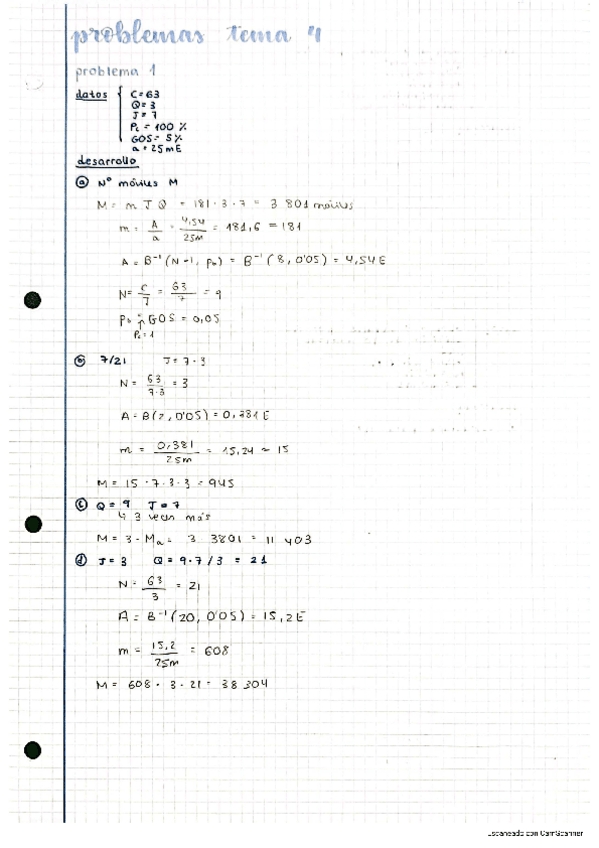 problemas tema 4
problema 1
datos
C=63
Q=3
J=7
Pc = 100 %
GOS= 5%
a = 25mE
desarrollo
a Nº móviles M
M = m J Q = 181·3·7 = 3 801 móviles
m = A/a = 4,54/25m = 181,6 = 181
A = B⁻¹(N-1, Po) = B⁻¹(8, 0'05) = 4,54E
N = C/7 = 63/7 = 9
Po = GOS = 0,05
Pc=1
b 7/21 J = 7·3
N = 63/7·3 = 3
A = B(2, 0'05) = 0,381E
m = 0,381/25m = 15,24 ≈ 15
M = 15·7·3·3 = 945
c Q = 9 J = 7
↳ 3 veces más
M = 3·Ma = 3 3801 = 11 403
d J = 3 Q = 9·7/3 = 21
N = 63/3 = 21
A = B⁻¹(20, 0'05) = 15,2E
m = 15,2/25m = 608
M = 608·3·21 = 38 304
Escaneado con CamScanner